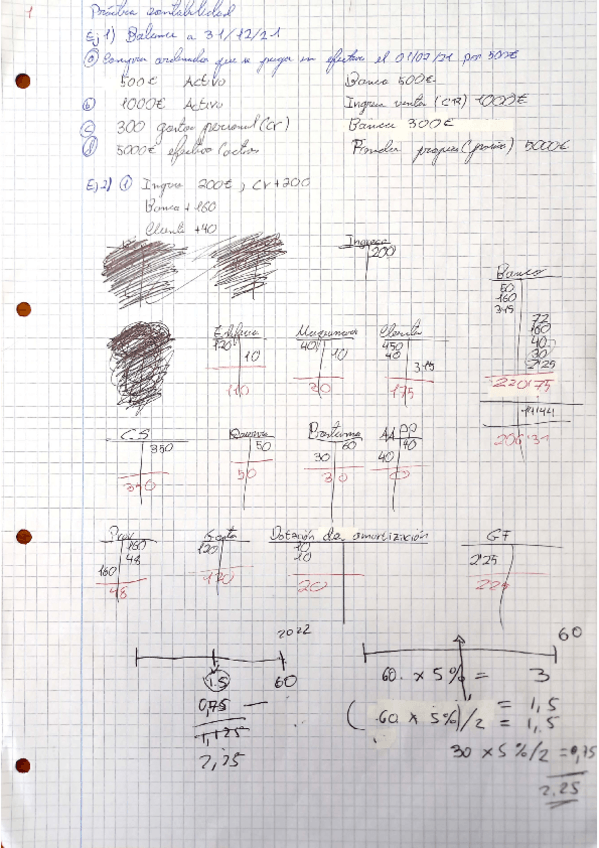 1
Práctica contabilidad
Ej 1) Balance a 31/12/21
a) Compra ordenador que se paga en efectivo el 01/07/21 por 500€
500€ Activo Banco 500€
b) 1000€ Activo Ingreso venta (CR) 1000€
c) 300 gastos personal (Cr) Banco 300€
d) 5000€ efectivo (activo) Fondos propios (pasivo) 5000€
Ej 2) 1 Ingreso 200€, Cr +200
Banco +160
Cliente +40
Ingreso
200
Banco
50
160
315
72
160
40
30
2'25
220'75
14'44
206'31
Edificio
120
10
110
Maquinaria
40
10
30
Cliente
450
40
315
175
C.S
350
350
Reserva
50
50
Préstamo
60
30
30
AAPP
40
40
0
Prov
160
48
160
48
Gasto
120
120
Dotación de amortización
10
10
20
GF
2'25
225
2022
1.5
60
0,75
1,125
2,25
60
60 x 5% = 3
= 1,5
(60 x 5%)/2 = 1,5
30 x 5%/2 = 0,75
2.25